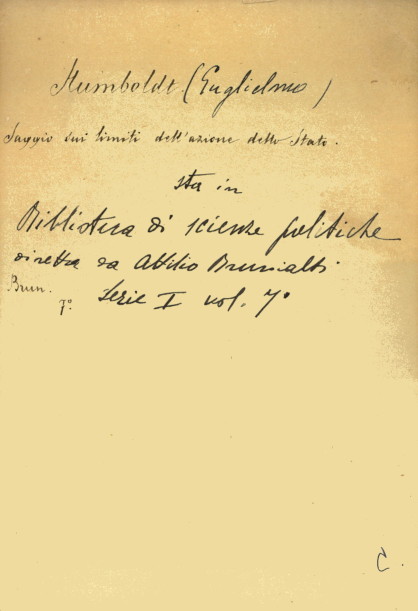 Humboldt (Guglielmo)
Saggio sui limiti dell'azione dello Stato.
sta in
Biblioteca di scienze politiche
diretta da Attilio Brunialti
Brun.
7º. Serie I vol. 7º
C.